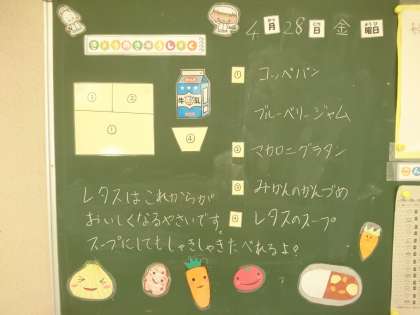 きょうのきゅうしょく
4月28日金曜日
① ② ① ④
牛乳
① コッペパン
ブルーベリージャム
マカロニグラタン
みかんのかんづめ
④ レタスのスープ
レタスはこれからが
おいしくなるやさいです。
スープにしてもしゃきしゃきたべれるよ？